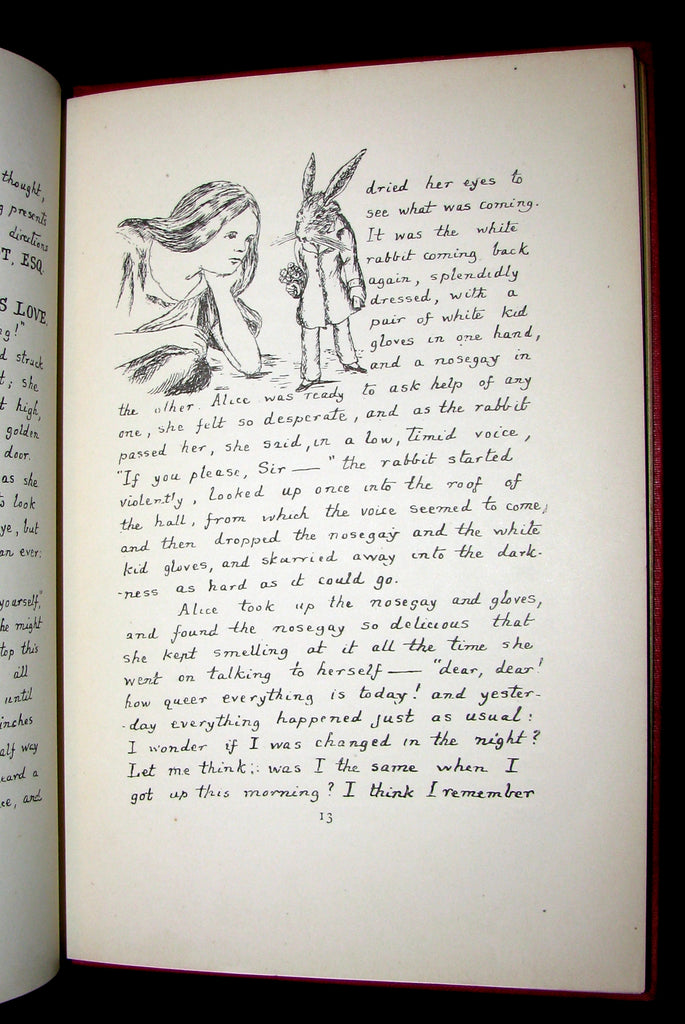 thought,
presents
directions
T, ESQ.
S LOVE,
g!"
d struck
t; she
t high,
golden
door.
as she
to look
ye, but
an ever:
yourself,"
he might
top this
all
until
inches
alf way
eard a
ce, and
dried her eyes to
see what was coming.
It was the white
rabbit coming back
again, splendidly
dressed, with a
pair of white kid
gloves in one hand,
and a nosegay in
the other. Alice was ready to ask help of any
one, she felt so desperate, and as the rabbit
passed her, she said, in a low, timid voice,
"If you please, Sir—" the rabbit started
violently, looked up once into the roof of
the hall, from which the voice seemed to come,
and then dropped the nosegay and the white
kid gloves, and skurried away into the dark-
-ness as hard as it could go.
Alice took up the nosegay and gloves,
and found the nosegay so delicious that
she kept smelling at it all the time she
went on talking to herself— "dear, dear!
how queer everything is today! and yester-
-day everything happened just as usual:
I wonder if I was changed in the night?
Let me think: was I the same when I
got up this morning? I think I remember
13